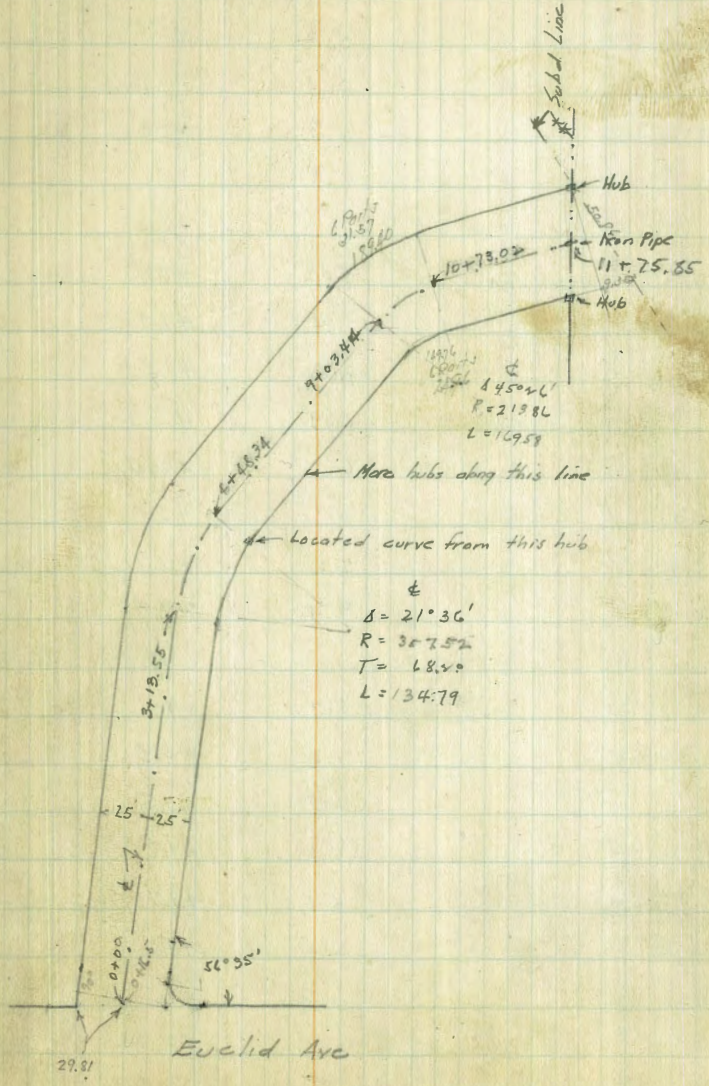 Subd. Line
Hub
Iron Pipe
11 + 75.85
Hub
10+73.02
9+03.44
Δ 45°26'
R = 213 86
L = 169 58
More hubs along this line
4+48.34
Located curve from this hub
Δ = 21°36'
R = 357.52
T = 68.20
L = 134.79
3+13.55
25 25
56°35'
0+00
0+16.5
Euclid Ave
29.81